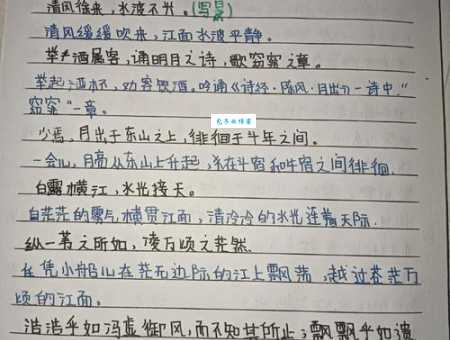 清风徐来，水波不兴。(写景)
清风缓缓吹来，江面水波平静。
举酒属客，诵明月之诗，歌窈窕之章。
举起酒杯，劝客饮酒。吟诵《诗经·陈风·月出》一诗中"
窈窕"一章。
少焉，月出于东山之上，徘徊于斗牛之间。
一会儿，月亮从东山上升起，在斗宿和牛宿之间徘徊.
白露横江，水光接天。
白茫茫的雾气横贯江面，清泠泠的水光连着天际.
纵一苇之所如，凌万顷之茫然.
任凭小船儿在茫无边际的江上飘荡，越过苍茫万
顷的江面。
浩浩乎如冯虚御风，而不知其所止；飘飘乎如遗